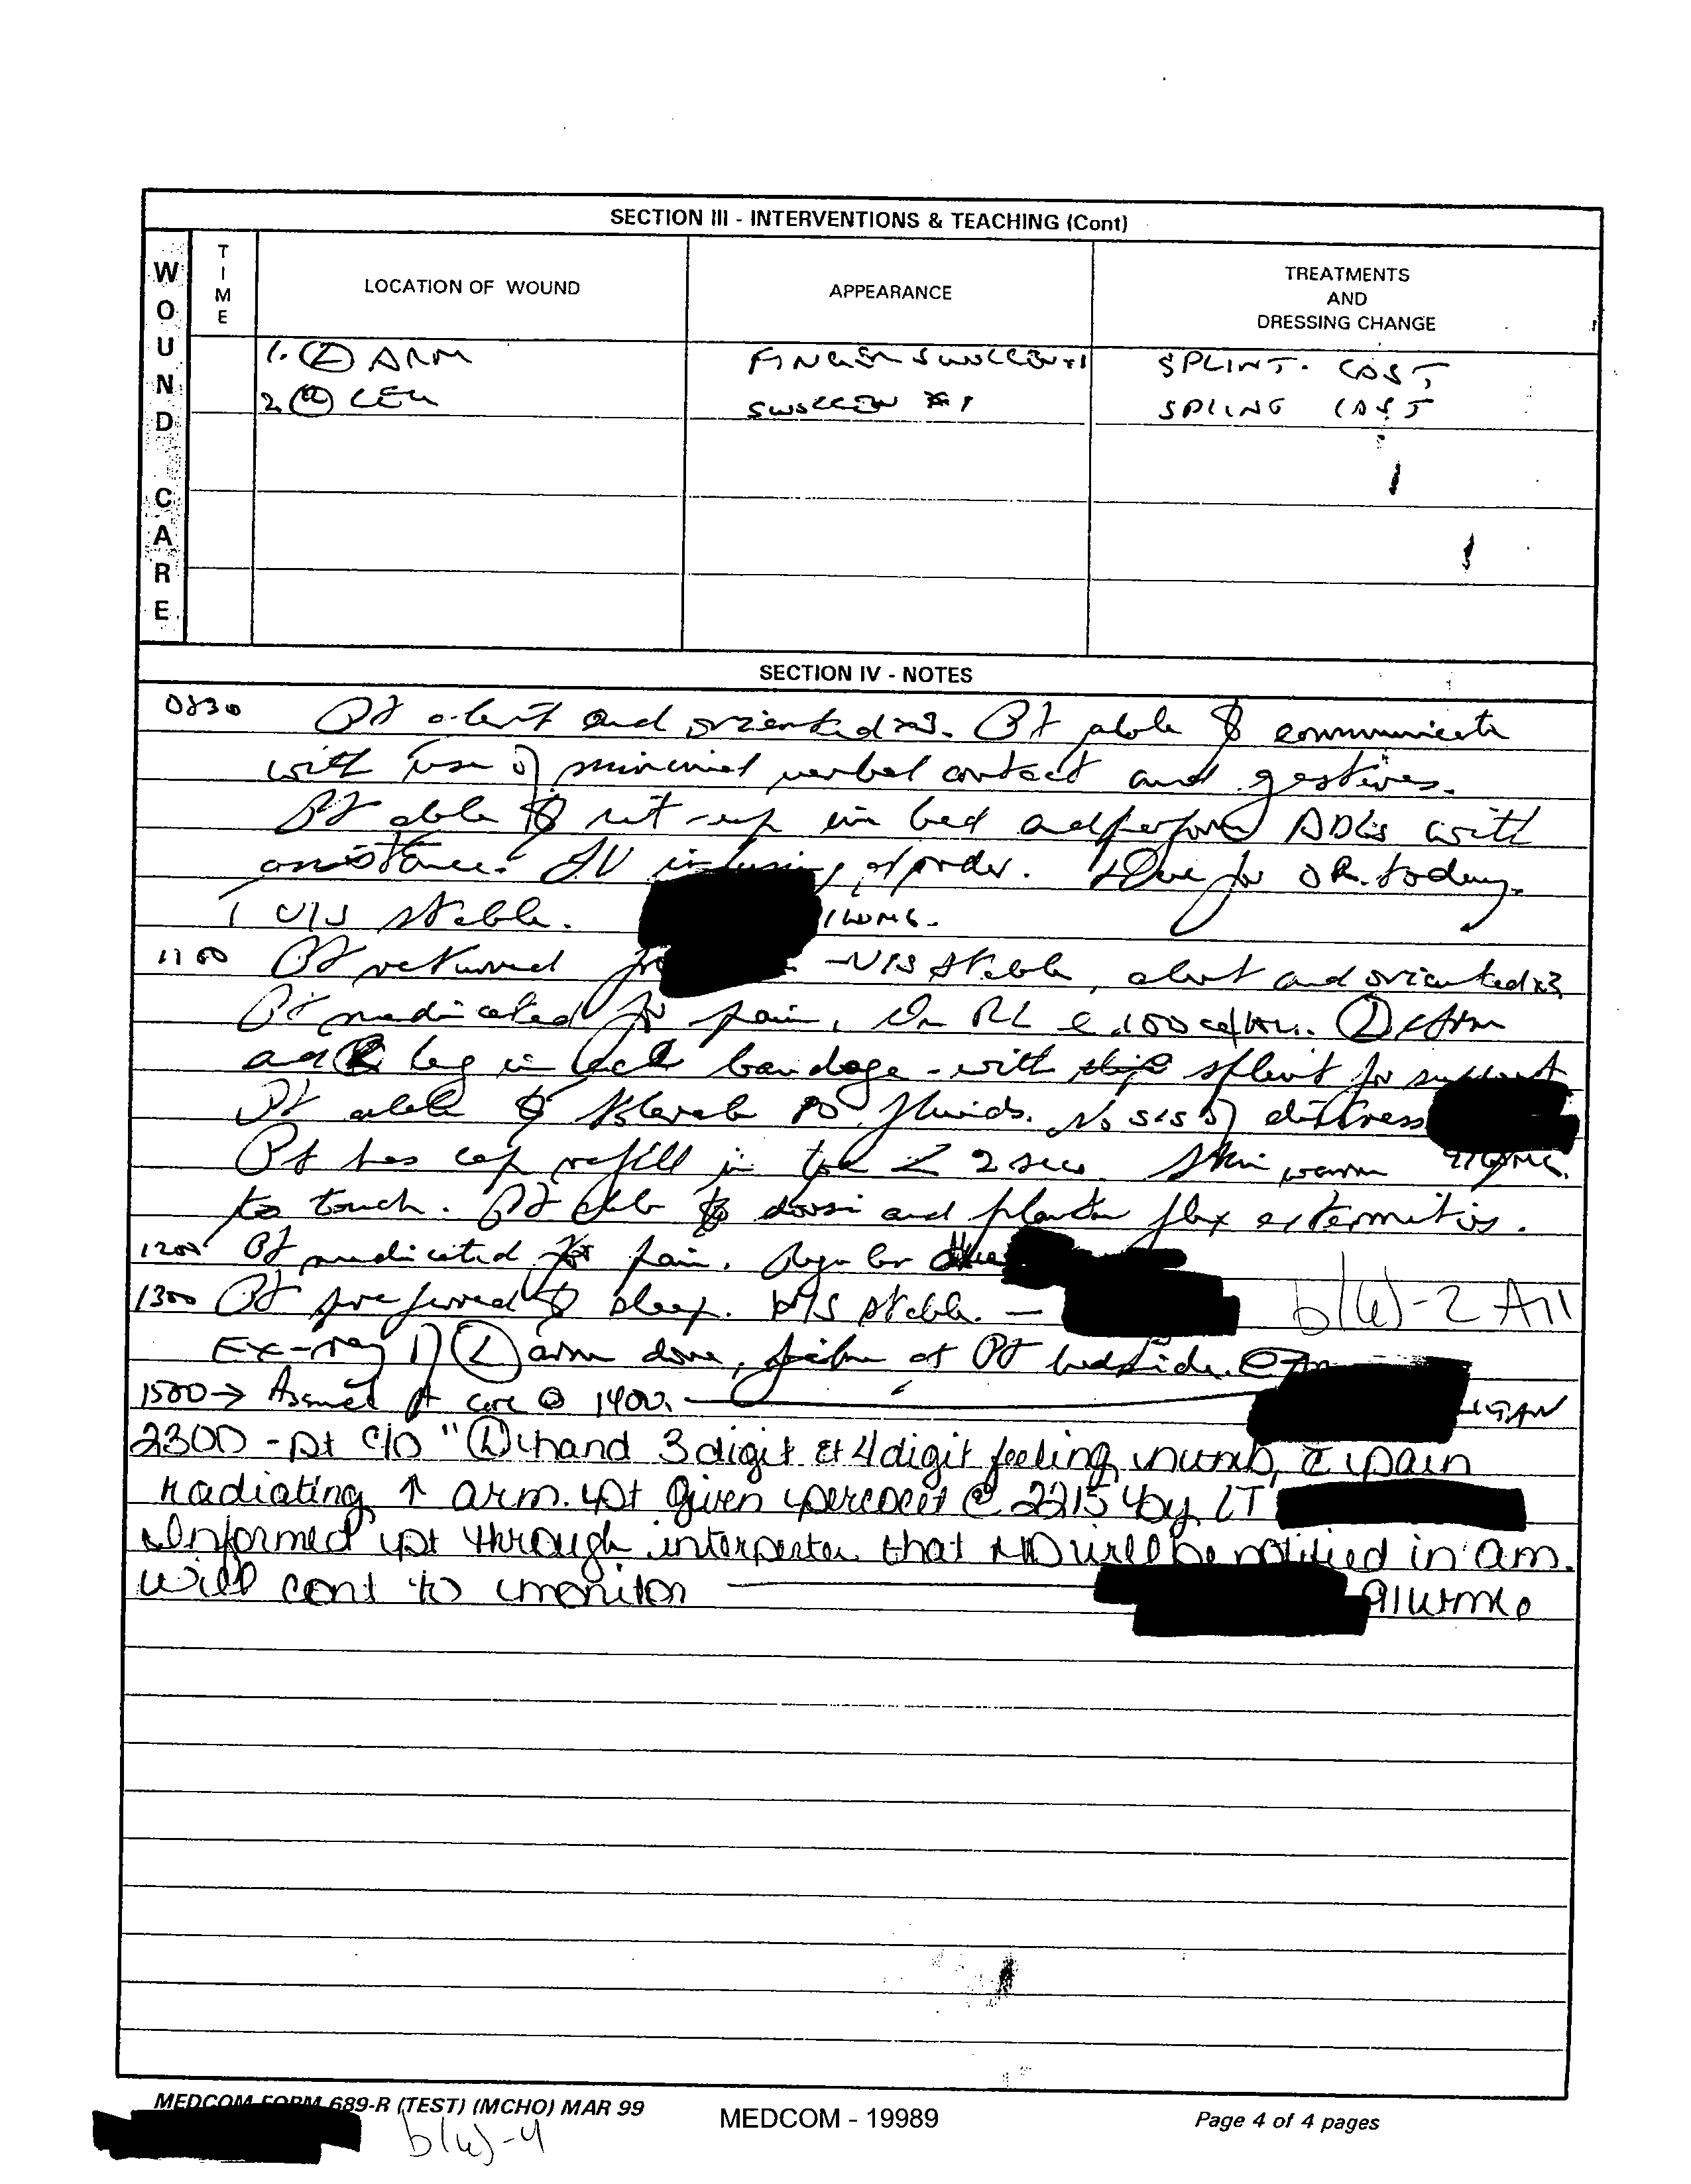 SECTION III - INTERVENTIONS & TEACHING (Cont)
WOUND CARE
TIME
LOCATION OF WOUND
APPEARANCE
TREATMENTS
AND
DRESSING CHANGE
1. (L) ARM FINGER SWOLLEN +1 SPLINT. CAST
2. (R) LEG SWOLLEN +1 SPLING CAST
SECTION IV - NOTES
0830 Pt alert and oriented x3. Pt able to communicate
with use of minimal verbal contact and gestures.
Pt able to sit-up in bed and perform ADLs with
assistance. IV infusing of order. Due for OR. today.
V/S stable.
1100 Pt returned V/S stable, alert and oriented x3
Pt medicated for pain, On RL @ 100 cc/hr. (L) arm
and (R) leg in bandage - with splint for support
Pt able to tolerate PO fluids. No s/s of distress
Pt has cap refill in toe < 2 sec. Skin warm
to touch. Pt able to dorsi and plantar flex extremities.
1200 Pt medicated for pain.
1300 Pt preferred to sleep. V/S stable. b(6)-2 All
Ex-ray of (L) arm done, film at Pt bedside.
1500 → Assumed pt care @ 1400.
2300 - pt c/o "(L) hand 3 digit & 4 digit feeling numb, c̄ pain
radiating ↑ arm. pt given percocet @ 2215 by LT
Informed pt through interpertor that MD will be notified in am.
will cont to monitor 91WM6
MEDCOM FORM 689-R (TEST) (MCHO) MAR 99
b(6)-4
MEDCOM - 19989
Page 4 of 4 pages